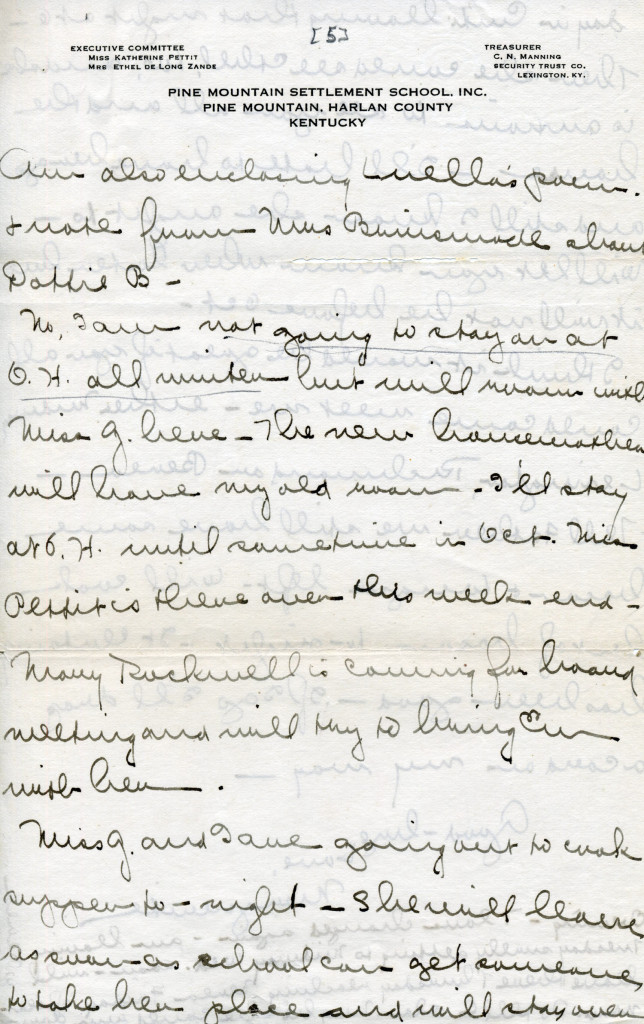 [5]
EXECUTIVE COMMITTEE
MISS KATHERINE PETTIT
MRS ETHEL DE LONG ZANDE
TREASURER
C. N. MANNING
SECURITY TRUST CO.
LEXINGTON, KY.
PINE MOUNTAIN SETTLEMENT SCHOOL, INC.
PINE MOUNTAIN, HARLAN COUNTY
KENTUCKY
Am also enclosing Luella's poem
& note from Mrs about
Dottie B -
No, I am not going to stay on at
O. H. all winter but will room with
Miss G. here - The new housemother
will have my old room - I'll stay
at O. H. until sometime in Oct. Miss
Pettit is there over this week end -
Mary Rockwell is coming for board
meeting and will try to bring Em
with her.
Miss G. and I are going out to cook
supper to-night - She will leave
as soon as school can get someone
to take her place and will stay over